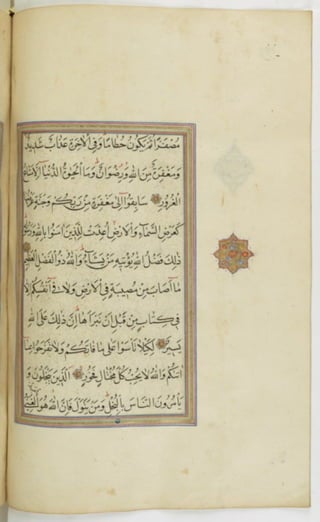 مُصْفَرًّا ثُمَّ يَكُونُ حُطَامًا وَفِي الْآخِرَةِ عَذَابٌ شَدِيدٌ
وَمَغْفِرَةٌ مِنَ اللَّهِ وَرِضْوَانٌ وَمَا الْحَيَوةُ الدُّنْيَا إِلَّا مَتَاعُ
الْغُرُورِ سَابِقُوا إِلَى مَغْفِرَةٍ مِنْ رَبِّكُمْ وَجَنَّةٍ عَرْضُهَا
كَعَرْضِ السَّمَاءِ وَالْأَرْضِ أُعِدَّتْ لِلَّذِينَ آمَنُوا بِاللَّهِ وَرُسُلِهِ
ذَلِكَ فَضْلُ اللَّهِ يُؤْتِيهِ مَنْ يَشَاءُ وَاللَّهُ ذُو الْفَضْلِ الْعَظِيمِ
مَا أَصَابَ مِنْ مُصِيبَةٍ فِي الْأَرْضِ وَلَا فِي أَنْفُسِكُمْ إِلَّا
فِي كِتَابٍ مِنْ قَبْلِ أَنْ نَبْرَأَهَا إِنَّ ذَلِكَ عَلَى اللَّهِ
يَسِيرٌ لِكَيْلَا تَأْسَوْا عَلَى مَا فَاتَكُمْ وَلَا تَفْرَحُوا بِمَا
آتَاكُمْ وَاللَّهُ لَا يُحِبُّ كُلَّ مُخْتَالٍ فَخُورٍ الَّذِينَ يَبْخَلُونَ وَ
يَأْمُرُونَ النَّاسَ بِالْبُخْلِ وَمَنْ يَتَوَلَّ فَإِنَّ اللَّهَ هُوَ الْغَنِيُّ